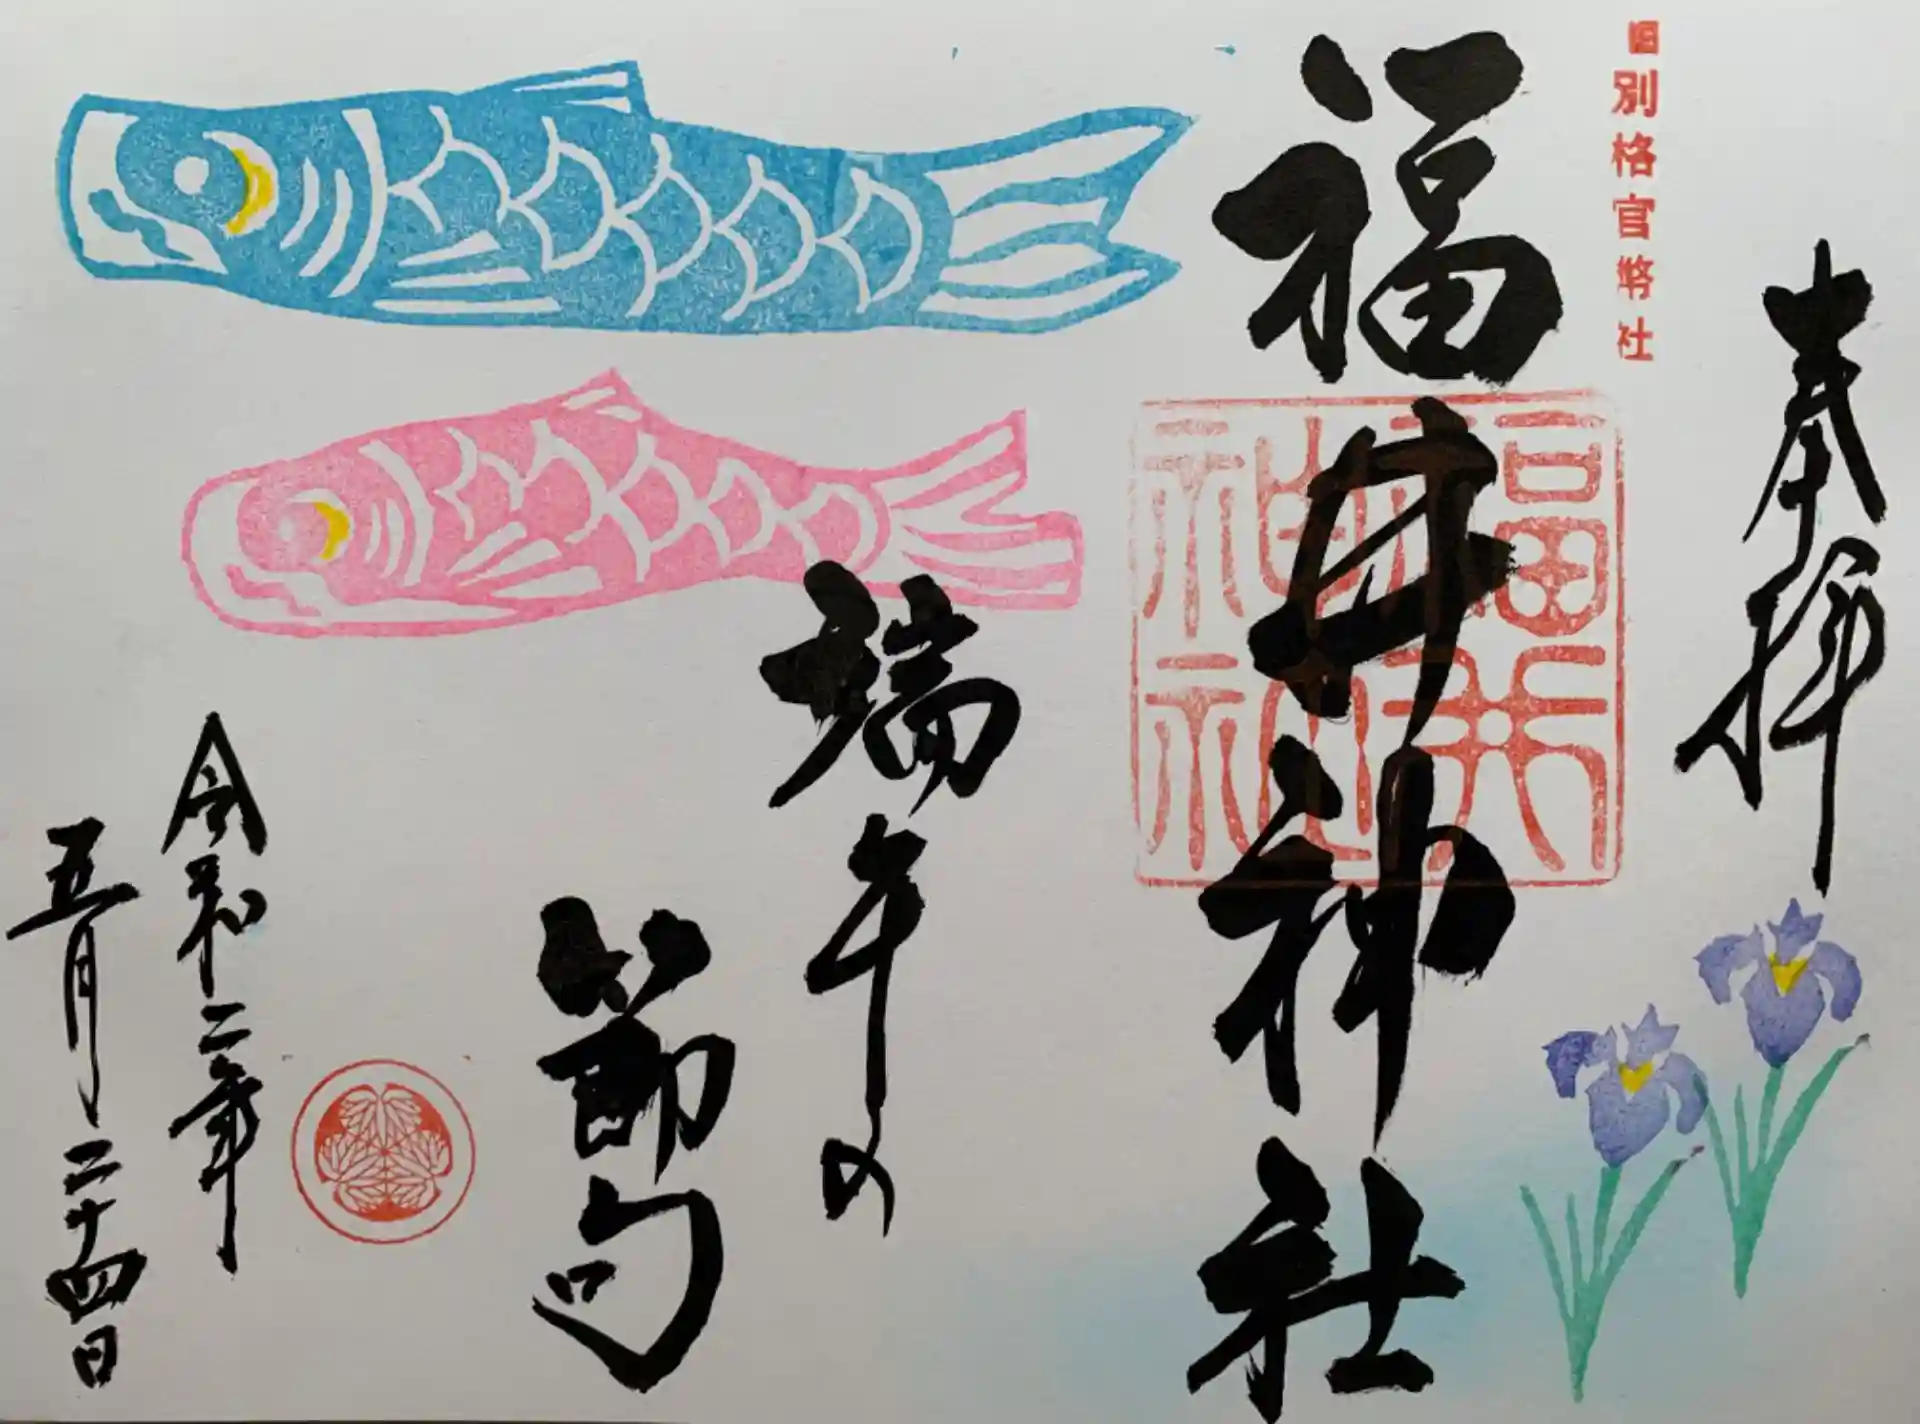 奉拝
旧別格官幣社
福井神社
福井神社
端午の
節句
令和二年
五月二十四日